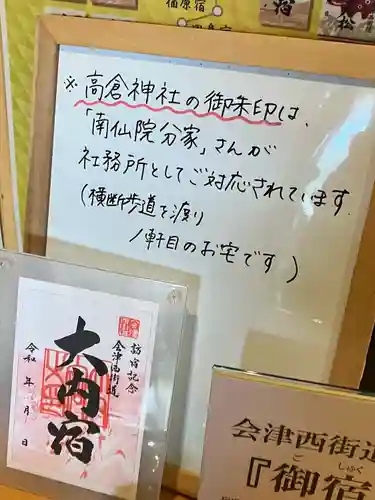 橿原宿
宿
※高倉神社の御朱印は、
「南仙院分家」さんが
社務所としてご対応されています.
(横断歩道を渡り
1軒目のお宅です)
訪宿記念
会津西街道
大内宿
令和 年 月 日
会津西街道
『御宿
ご しゅく